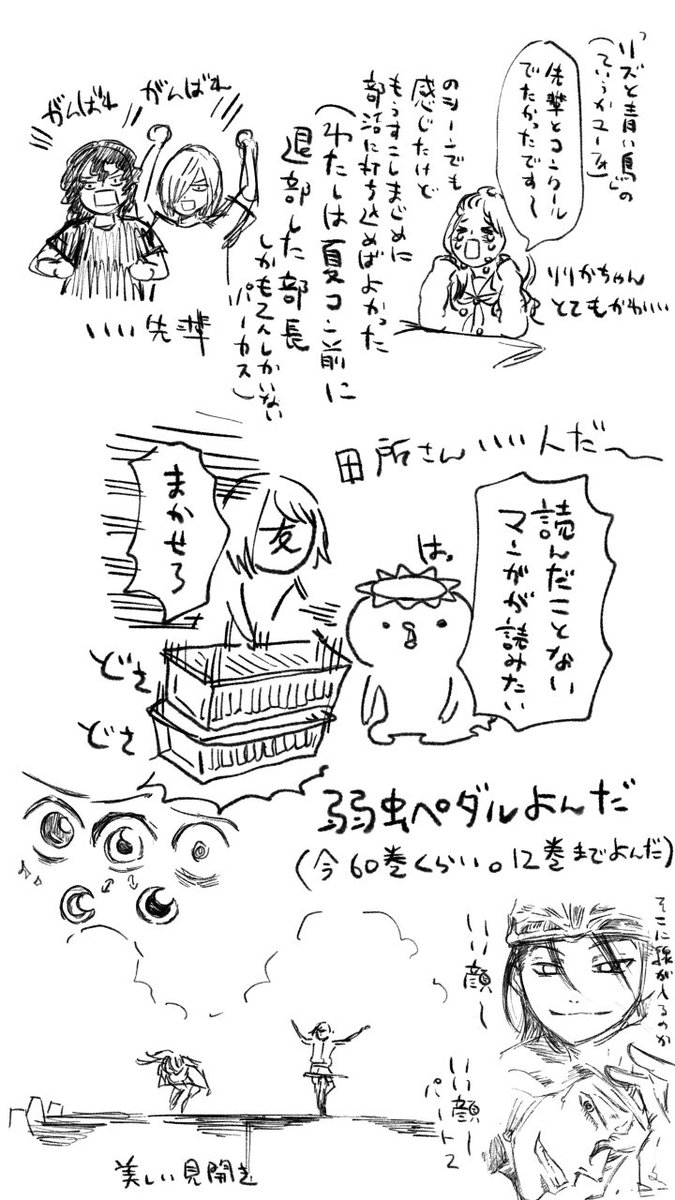 「リズと青い鳥」の
(ていうかユーフォ)
先輩とコンクール
でたかったです〜
りりかちゃん
とてもかわいい
のシーンでも
感じたけど
もうすこしまじめに
部活に打ち込めばよかった
(わたしは夏コン前に
退部した部長
しかも2人しかいない
パーカス)
がんばれ
がんばれ
いい先輩
田所さんいい人だ〜
読んだことない
マンガが読みたい
は。
友
まかせろ
どさ
どさ
弱虫ペダルよんだ
(今60巻くらい。12巻までよんだ)
そこに線が入るのか
いい顔〜
いい顔〜
パート2
美しい見開き